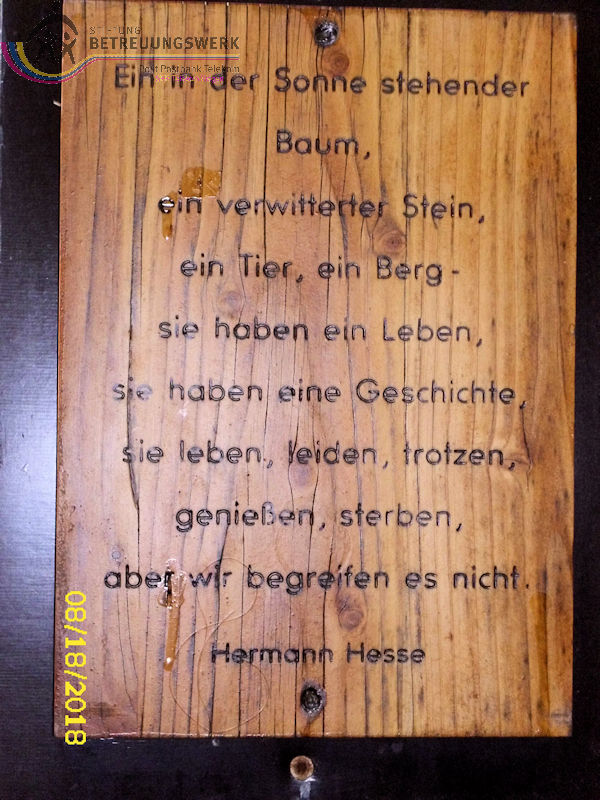 STIFTUNG
BETREUUNGSWERK
Post Postbank Telekom
Ein in der Sonne stehender
Baum,
ein verwitterter Stein,
ein Tier, ein Berg -
sie haben ein Leben,
sie haben eine Geschichte,
sie leben, leiden, trotzen,
genießen, sterben,
aber wir begreifen es nicht.
Hermann Hesse
08/18/2018